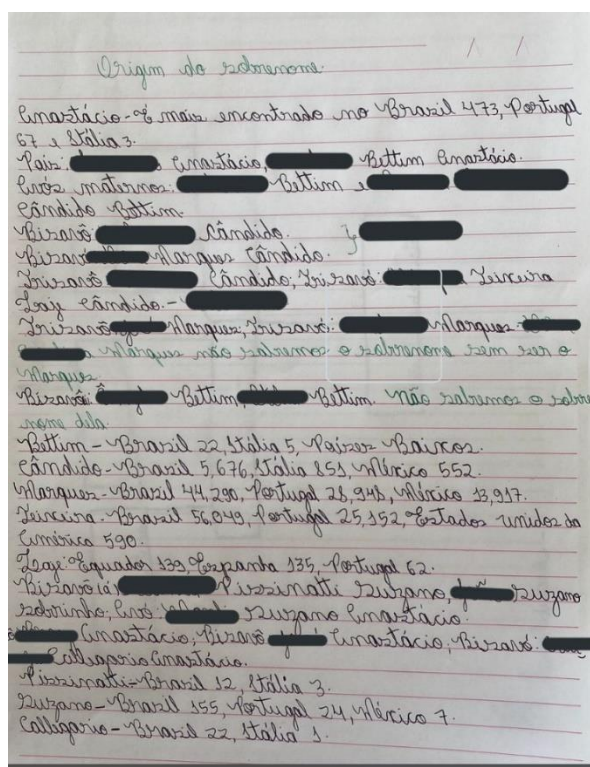 Origim do sobrenome.
Anastácio - É mais encontrado no Brasil 473, Portugal
67 e Itália 3.
Pais: Anastácio, Bettim Anastácio.
Avós maternos: Bettim e
Cândido Bettim.
Bisavô Cândido.
Bisavó Marques Cândido.
Trisavô Cândido; Trisavó: Teixeira
Laji Cândido. -
Trisavô Marques; Trisavó: Marques
Marques não sabemos o sobrenome sem ser o
Marques.
Bisavô: Bettim, Bettim. Não sabemos o sobre
nome dela.
Bettim - Brasil 22, Itália 5, Países Baixos 2.
Cândido - Brasil 5,676, Itália 851, México 552.
Marques - Brasil 44,290, Portugal 28,948, México 13,917.
Teixeira - Brasil 56,049, Portugal 25,152, Estados unidos da
América 590.
Laje Equador 139, Espanha 135, Portugal 62.
Pizzinatti Suzano, Suzano
sobrinho, Avó: Suzano Anastácio.
Anastácio; Bisavô Anastácio, Bisavó:
Calligario Anastácio.
Pizzinatti - Brasil 12, Itália 3.
Suzano - Brasil 155, Portugal 24, México 7.
Calligario - Brasil 22, Itália 1.